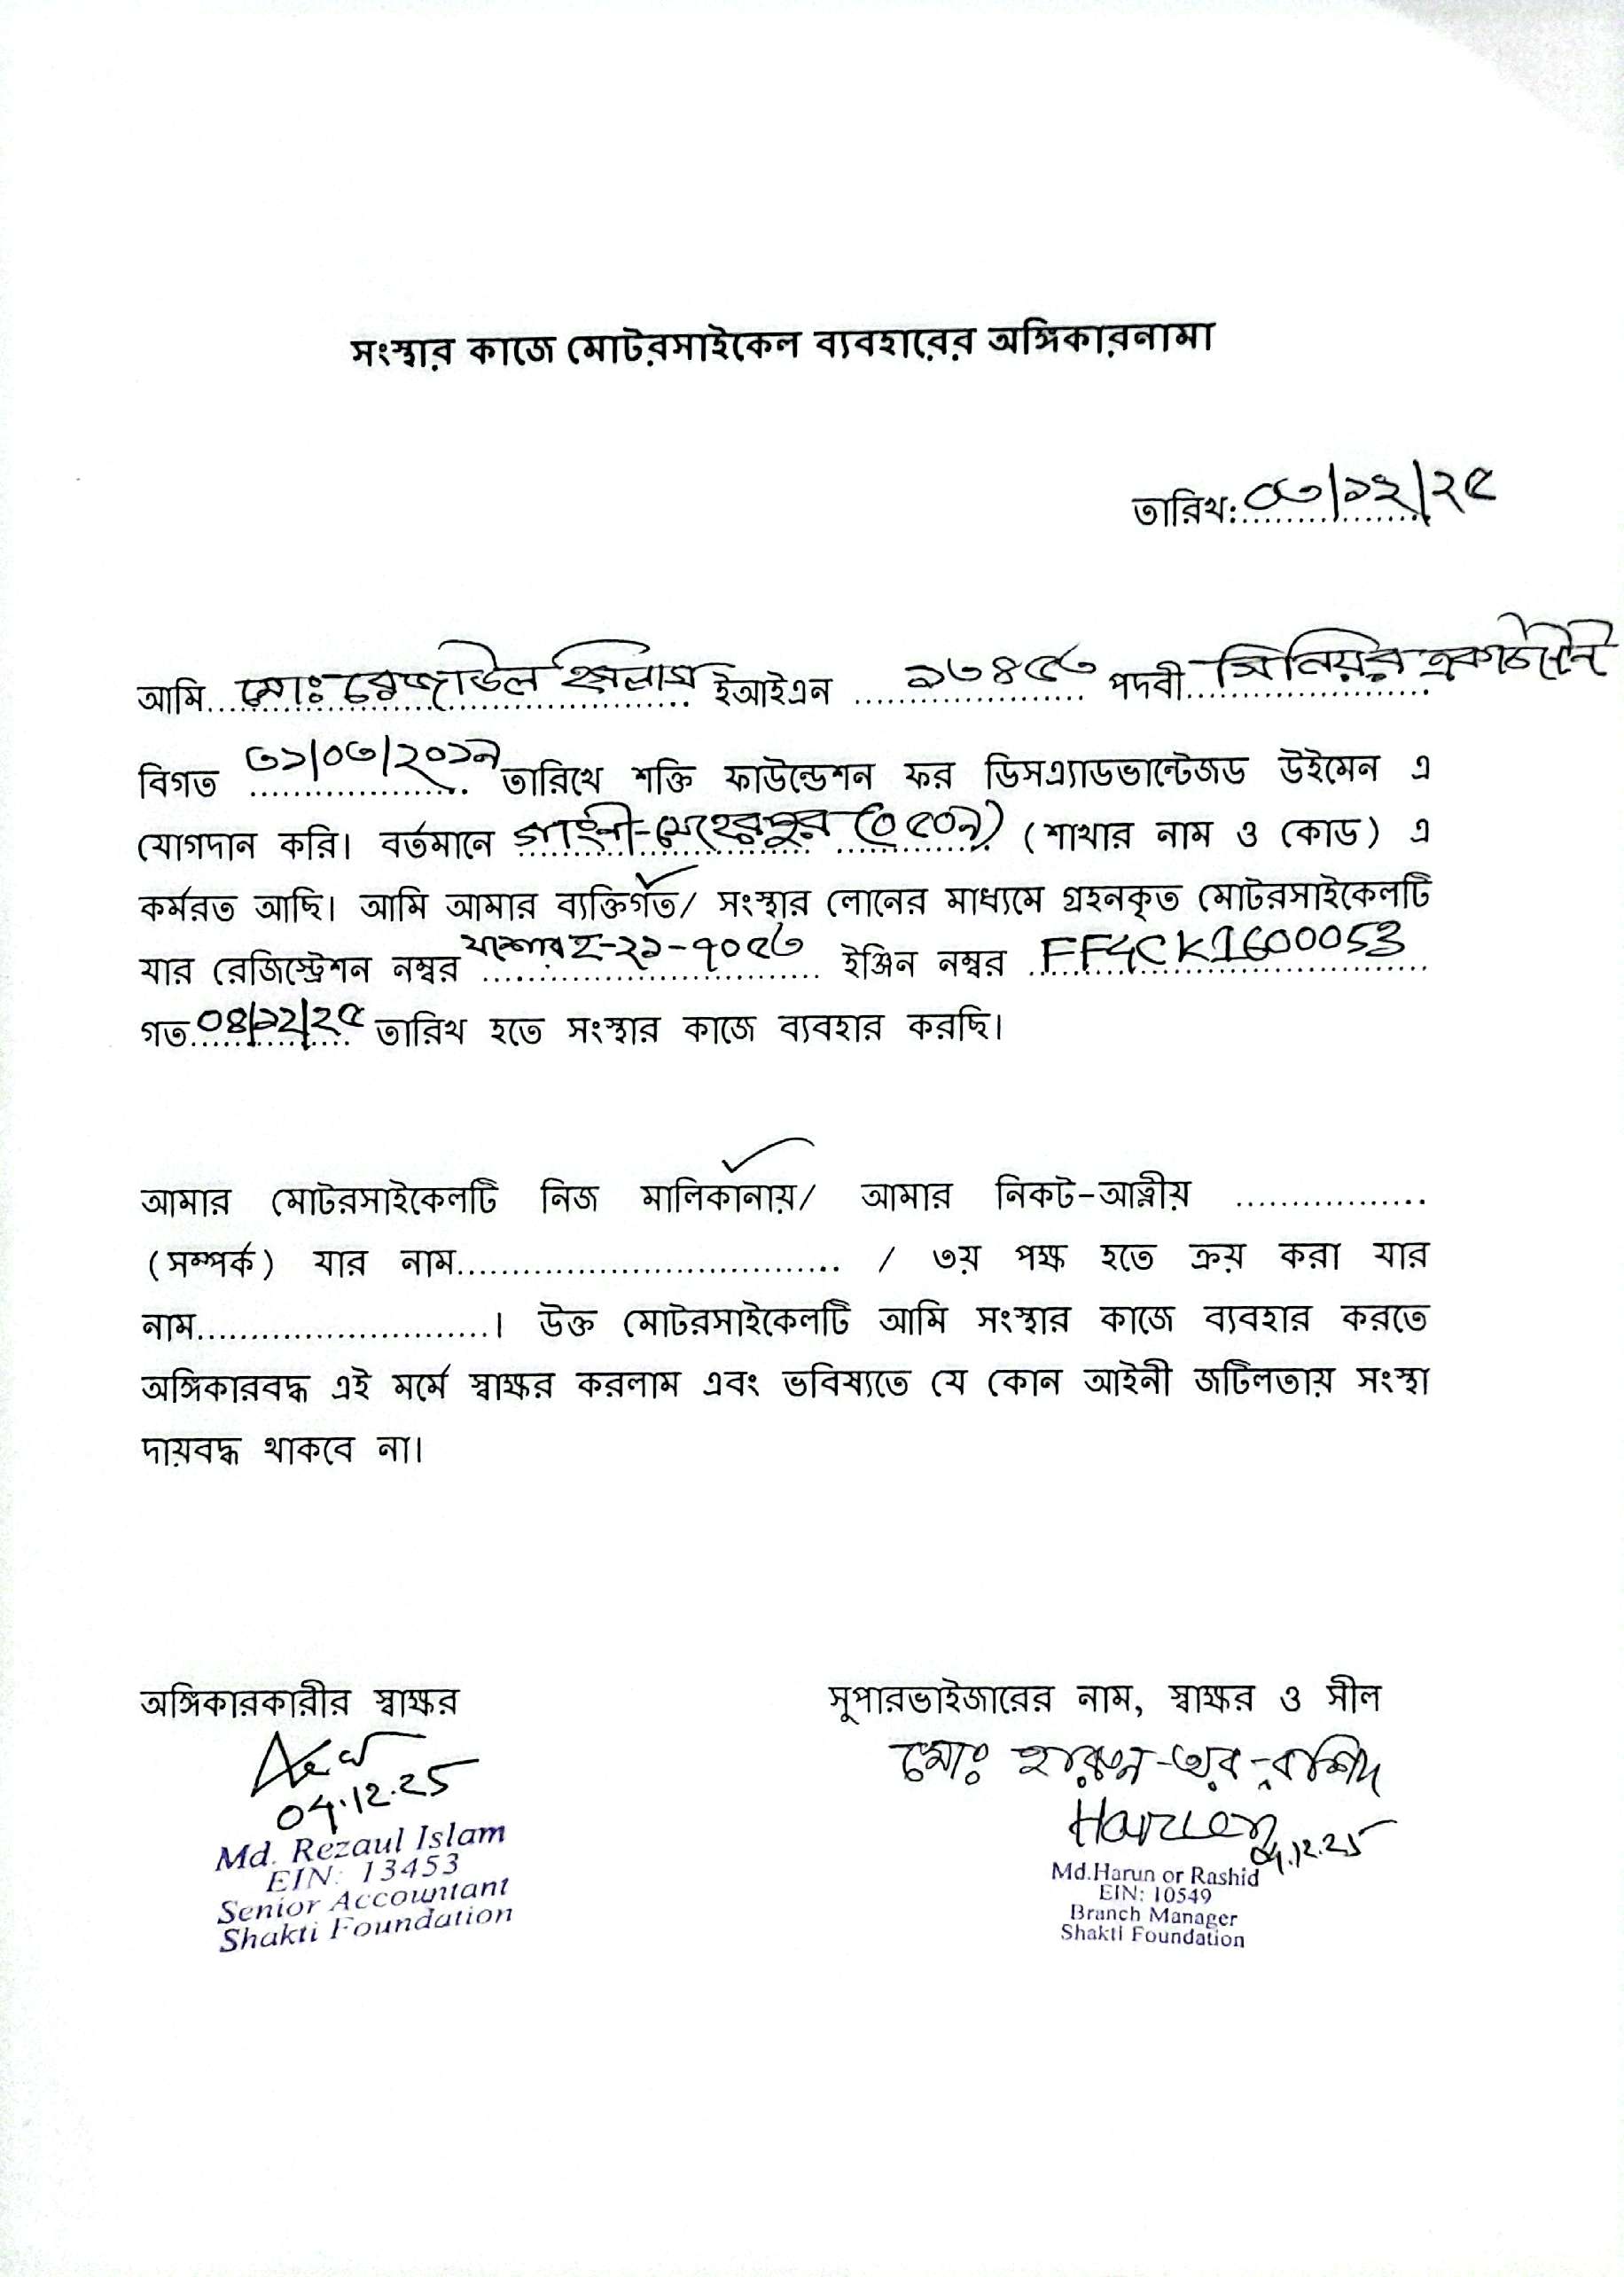 সংস্থার কাজে মোটরসাইকেল ব্যবহারের অঙ্গিকারনামা
তারিখ: ০৩/১২/২৫
আমি মোঃ রেজাউল ইসলাম ইআইএন ১৩৪৫৩ পদবী সিনিয়র একাউন্টেন্ট
বিগত ৩১/০৩/২০১৯ তারিখে শক্তি ফাউন্ডেশন ফর ডিসএ্যাডভান্টেজড উইমেন এ
যোগদান করি। বর্তমানে গাংনী-মেহেরপুর (০৫০৯) (শাখার নাম ও কোড) এ
কর্মরত আছি। আমি আমার ব্যক্তিগত/ সংস্থার লোনের মাধ্যমে গ্রহনকৃত মোটরসাইকেলটি
যার রেজিস্ট্রেশন নম্বর যশোর হ-২১-৭০৫৩ ইঞ্জিন নম্বর FF4CK1600053
গত ০৪/১২/২৫ তারিখ হতে সংস্থার কাজে ব্যবহার করছি।
আমার মোটরসাইকেলটি নিজ মালিকানায়/ আমার নিকট-আত্নীয় .................
(সম্পর্ক) যার নাম.................................. / ৩য় পক্ষ হতে ক্রয় করা যার
নাম..........................। উক্ত মোটরসাইকেলটি আমি সংস্থার কাজে ব্যবহার করতে
অঙ্গিকারবদ্ধ এই মর্মে স্বাক্ষর করলাম এবং ভবিষ্যতে যে কোন আইনী জটিলতায় সংস্থা
দায়বদ্ধ থাকবে না।
অঙ্গিকারকারীর স্বাক্ষর
04.12.25
Md. Rezaul Islam
EIN: 13453
Senior Accountant
Shakti Foundation
সুপারভাইজারের নাম, স্বাক্ষর ও সীল
মোঃ হারুন-অর-রশিদ
Harun 04.12.25
Md.Harun or Rashid
EIN: 10549
Branch Manager
Shakti Foundation